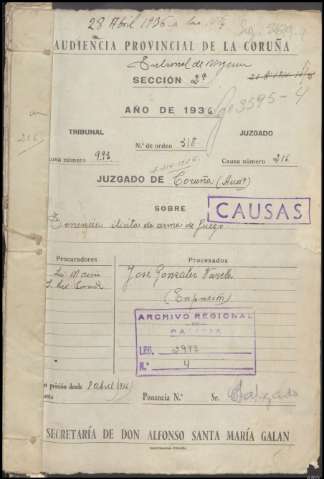 28 Abril 1936 a las
AUDIENCIA PROVINCIAL DE LA CORUÑA
Tribunal de
SECCIÓN 2ª
AÑO DE 1936
3595-4
TRIBUNAL JUZGADO
N.º de orden 318
usa número 993 Causa número 216
JUZGADO DE Coruña (Audª)
SOBRE
CAUSAS
Tenencia ilícita de arma de fuego
Procuradores Procesados
José González Varela
(En prisión)
ARCHIVO REGIONAL
DE
GALICIA
LEG. 2972
N.º 4
n prisión desde 9 abril 1936
Ponencia N.º Sr.
SECRETARÍA DE DON ALFONSO SANTA MARÍA GALAN